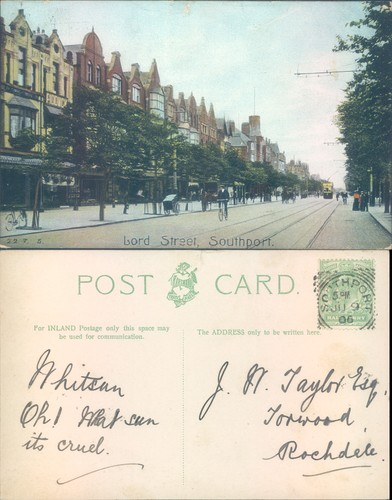 227. S
Lord Street, Southport.
POST CARD.
For INLAND Postage only this space may
be used for communication.
The ADDRESS only to be written here.
SOUTHPORT
5 PM
JU 9
06
Whitsun
Oh! What sun
its cruel.
J. W. Taylor Esq.
Torwood,
Rochdale.